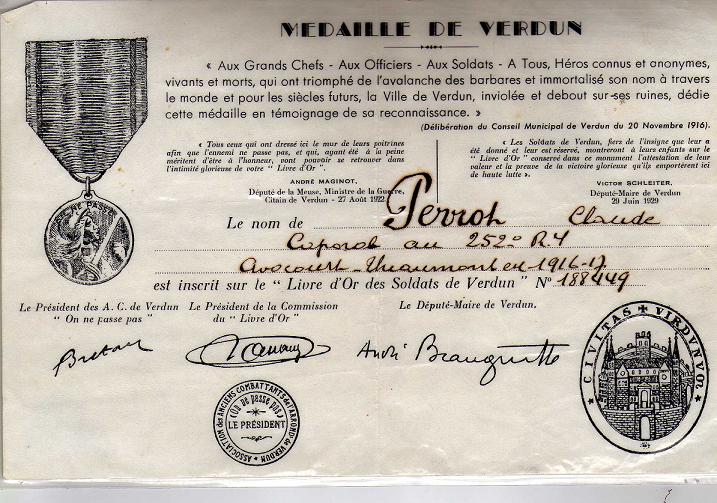 MEDAILLE DE VERDUN
« Aux Grands Chefs - Aux Officiers - Aux Soldats - A Tous, Héros connus et anonymes,
vivants et morts, qui ont triomphé de l'avalanche des barbares et immortalisé son nom à travers
le monde et pour les siècles futurs, la Ville de Verdun, inviolée et debout sur ses ruines, dédie
cette médaille en témoignage de sa reconnaissance. »
(Délibération du Conseil Municipal de Verdun du 20 Novembre 1916).
« Tous ceux qui ont dressé ici le mur de leurs poitrines
afin que l'ennemi ne passe pas, et qui, ayant été à la peine
méritent d'être à l'honneur, vont pouvoir se retrouver dans
l'intimité glorieuse de votre " Livre d'Or ".
ANDRÉ MAGINOT,
Député de la Meuse, Ministre de la Guerre,
Citain de Verdun - 27 Août 1922
« Les Soldats de Verdun, fiers de l'insigne que leur a
été donné et leur est réservé, montreront à leurs enfants sur le
" Livre d'Or " conservé dans ce monument l'attestation de leur
valeur et la preuve de la victoire glorieuse qu'ils emportèrent ici
de haute lutte ».
VICTOR SCHLEITER,
Député-Maire de Verdun
29 Juin 1929
ON NE PASSE PAS
Le nom de Perrot Claude
Caporal au 252e R4
Avocourt - Thiaumont en 1916-17
est inscrit sur le " Livre d'Or des Soldats de Verdun " No 188449
Le Président des A. C. de Verdun
" On ne passe pas "
Le Président de la Commission
du " Livre d'Or "
Le Député-Maire de Verdun.
André Beauguitte
ASSOCIATION des ANCIENS COMBATTANTS de l'ARROND. de VERDUN
(On ne passe pas)
LE PRÉSIDENT
CIVITAS VIRDVNVM